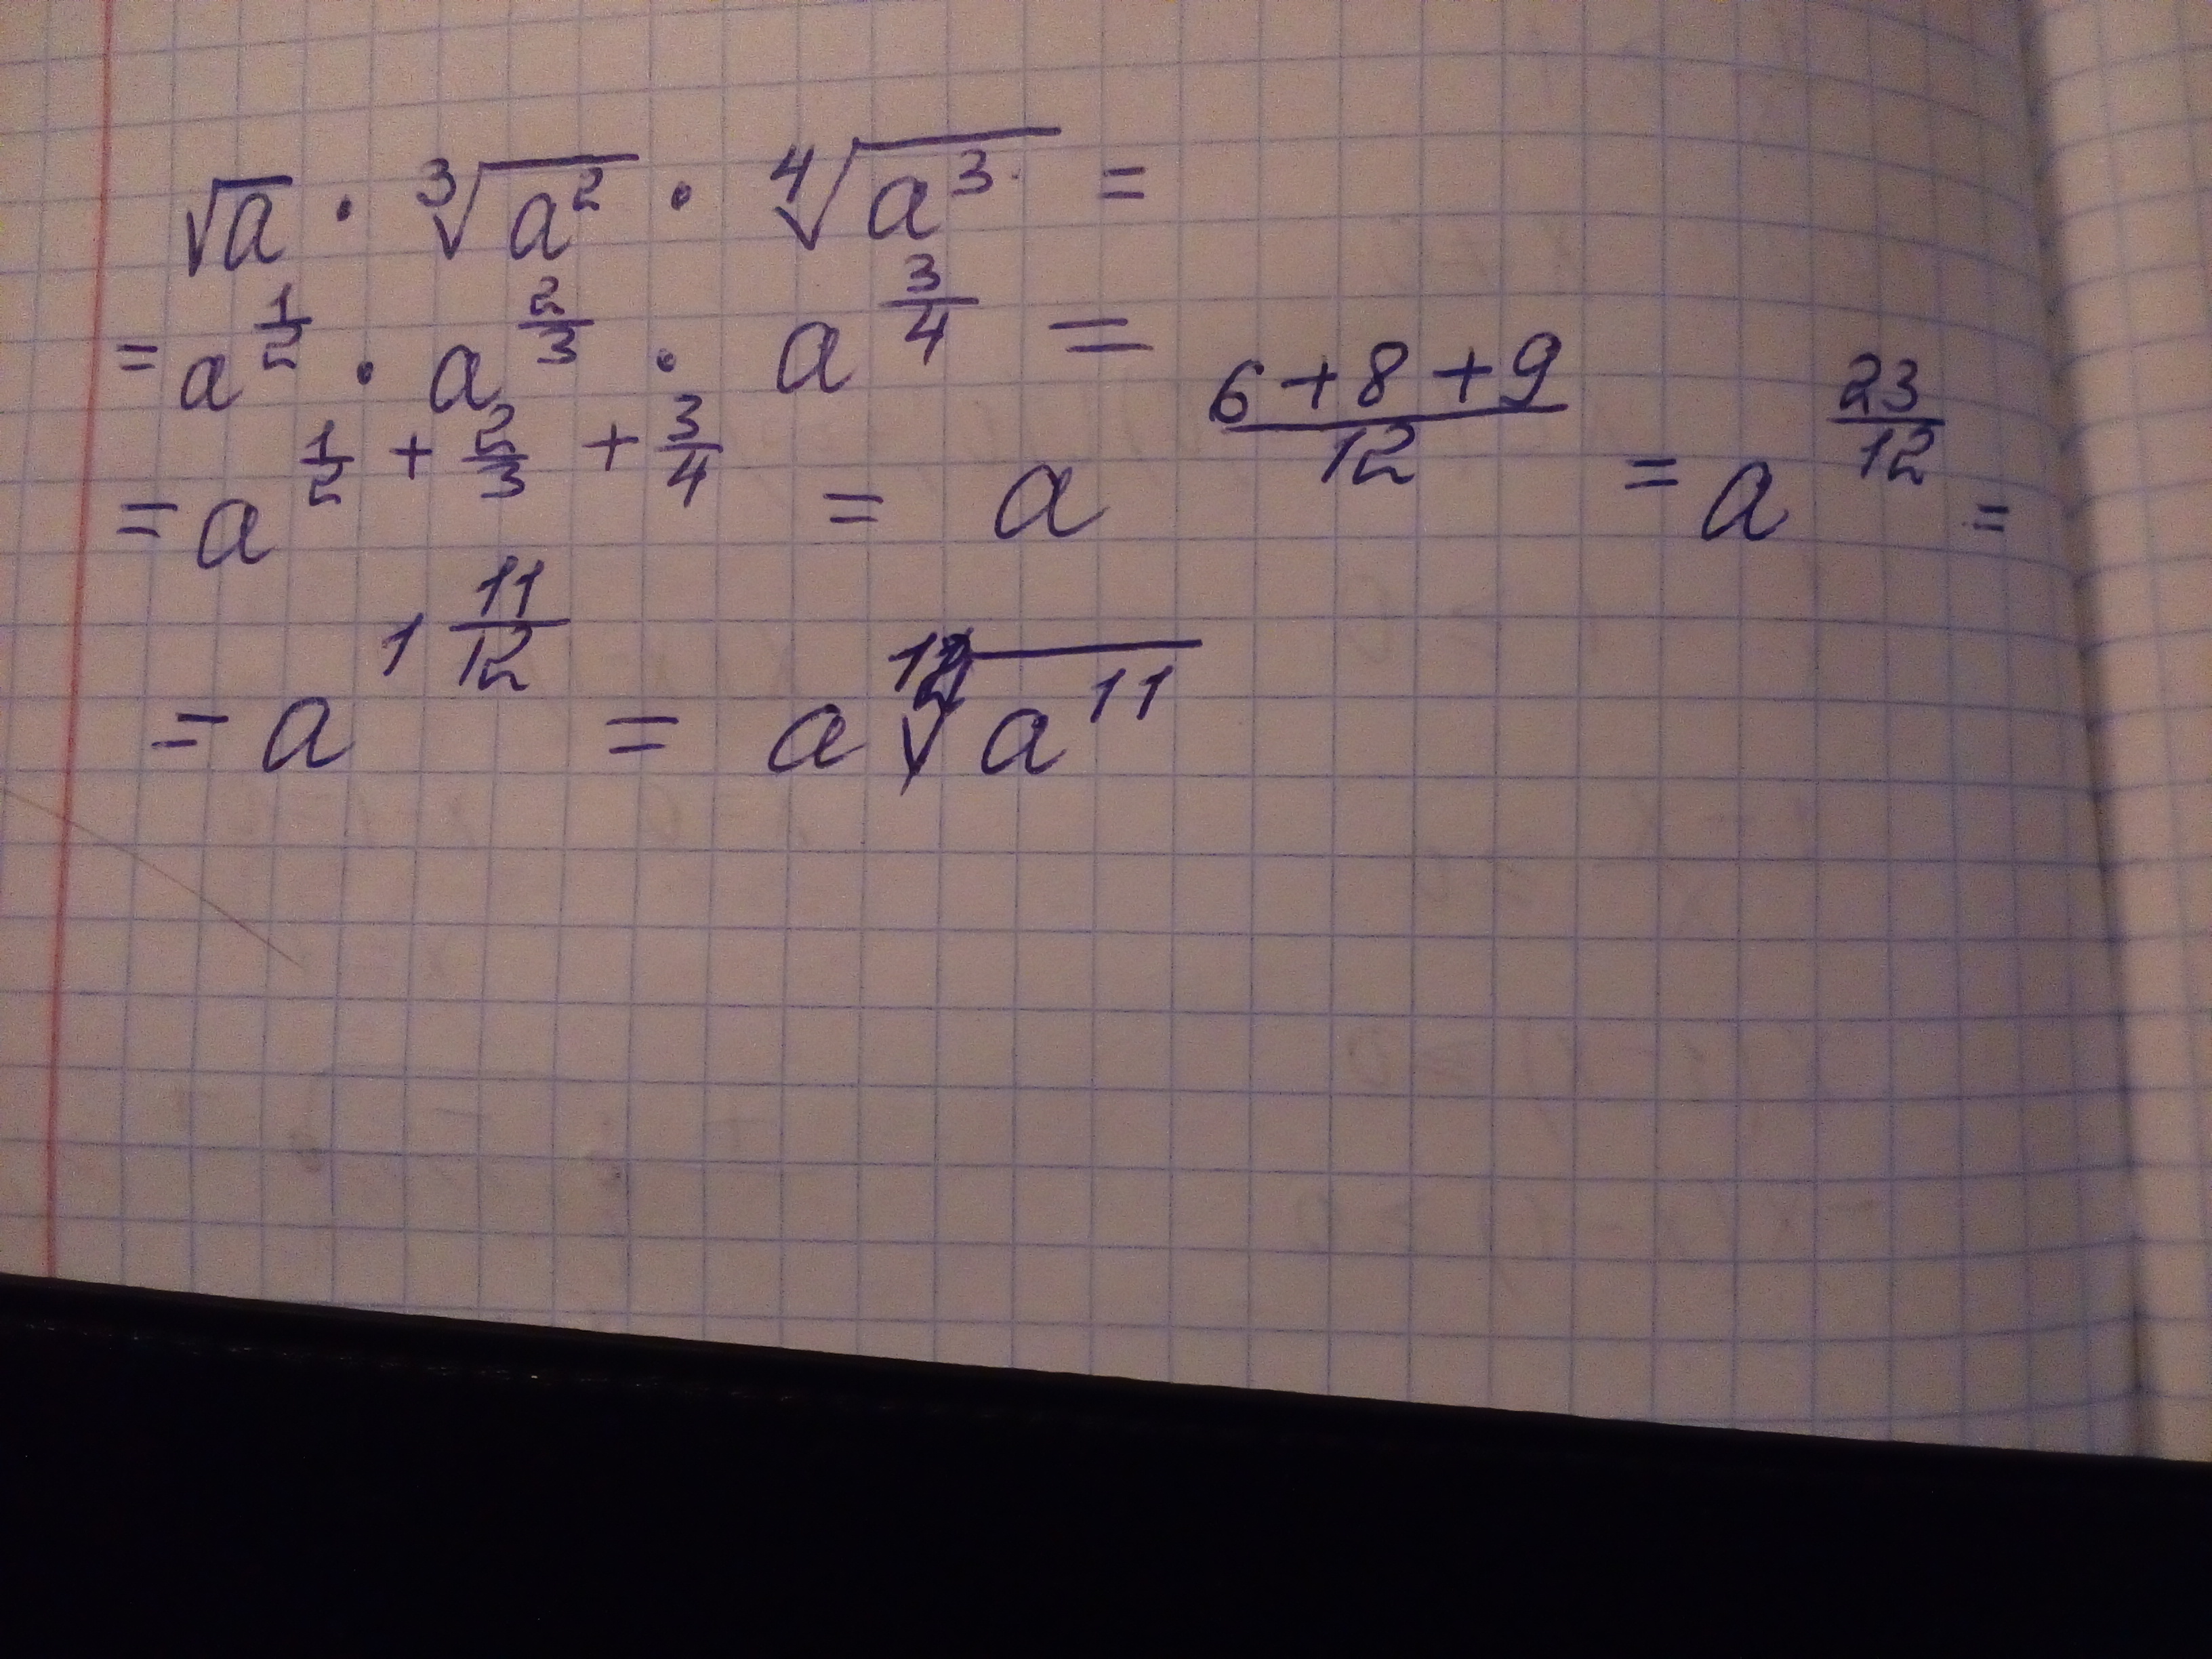 √a · ³√a² · ⁴√a³ =
= a^(1/2) · a^(2/3) · a^(3/4) =
= a^(1/2 + 2/3 + 3/4) = a^((6+8+9)/12) = a^(23/12) =
= a^(1 11/12) = a ¹²√a¹¹